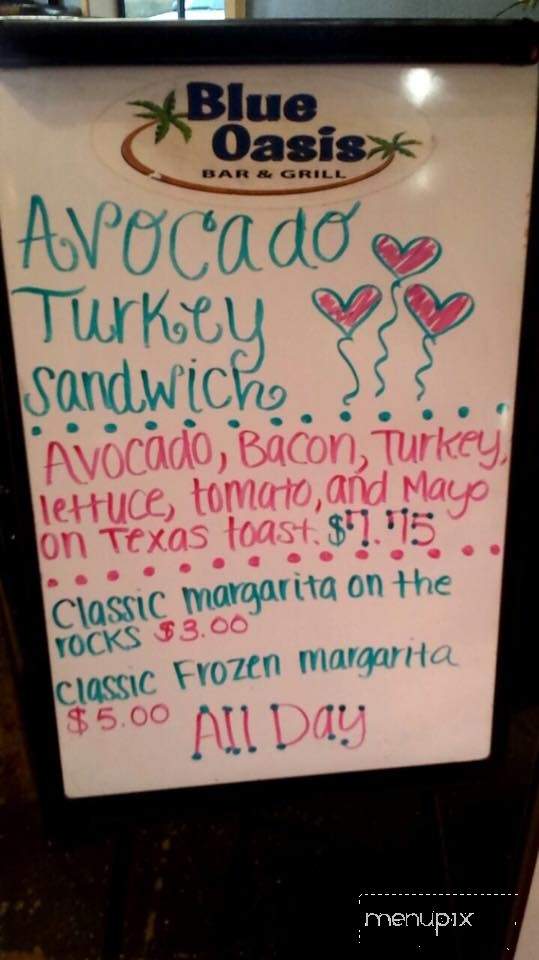 Blue
Oasis
BAR & GRILL
Avocado
Turkey
sandwich
Avocado, Bacon, Turkey,
lettuce, tomato, and Mayo
on Texas toast. $7.75
Classic margarita on the
rocks $3.00
classic Frozen margarita
$5.00 All Day
menupix